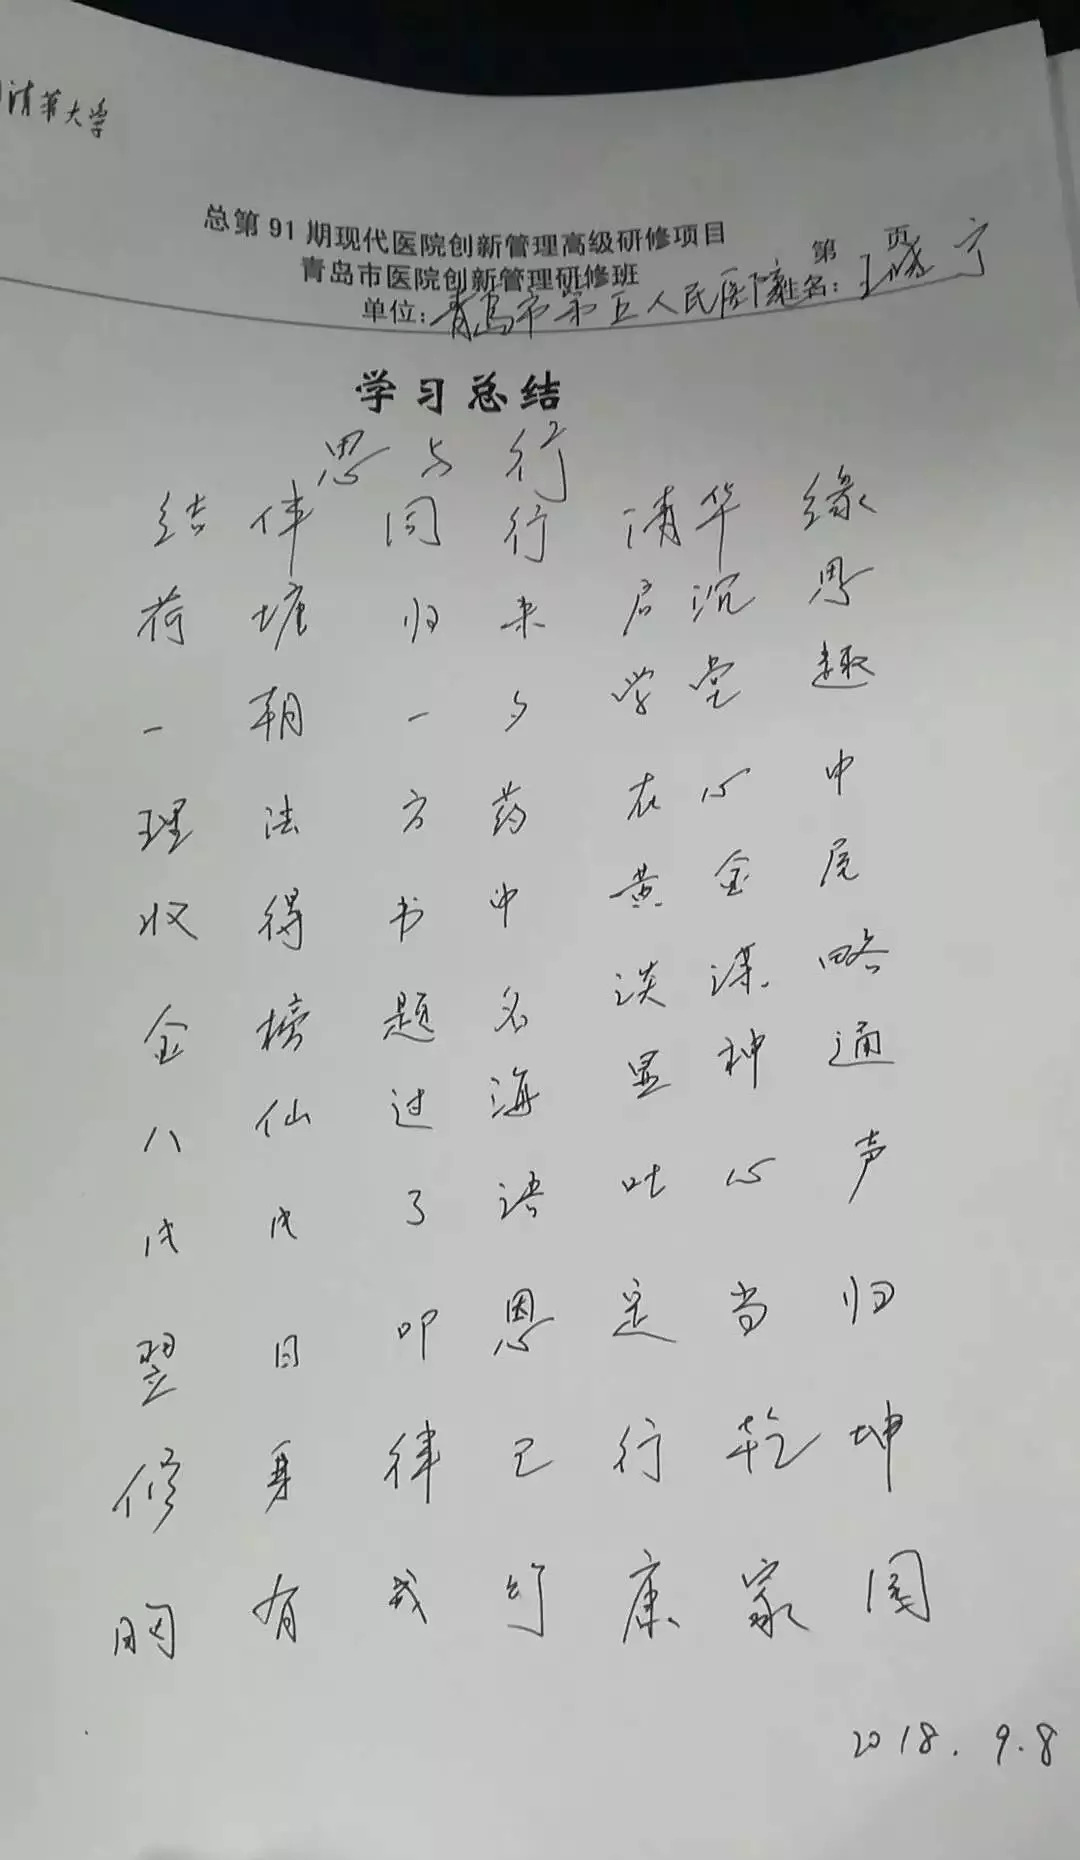 清华大学
总第91期现代医院创新管理高级研修项目
青岛市医院创新管理研修班 第 页
单位:青岛市第五人民医院 姓名:王晓宁
学习总结
思与行
结伴同行清华缘
荷塘归来启沉思
一朝一夕学堂趣
理法方药在心中
收得书中黄金屋
金榜题名谈谋略
八仙过海显神通
了语吐心声
翌日叩恩定当归
修身律己行乾坤
胸有 康家国
2018.9.8